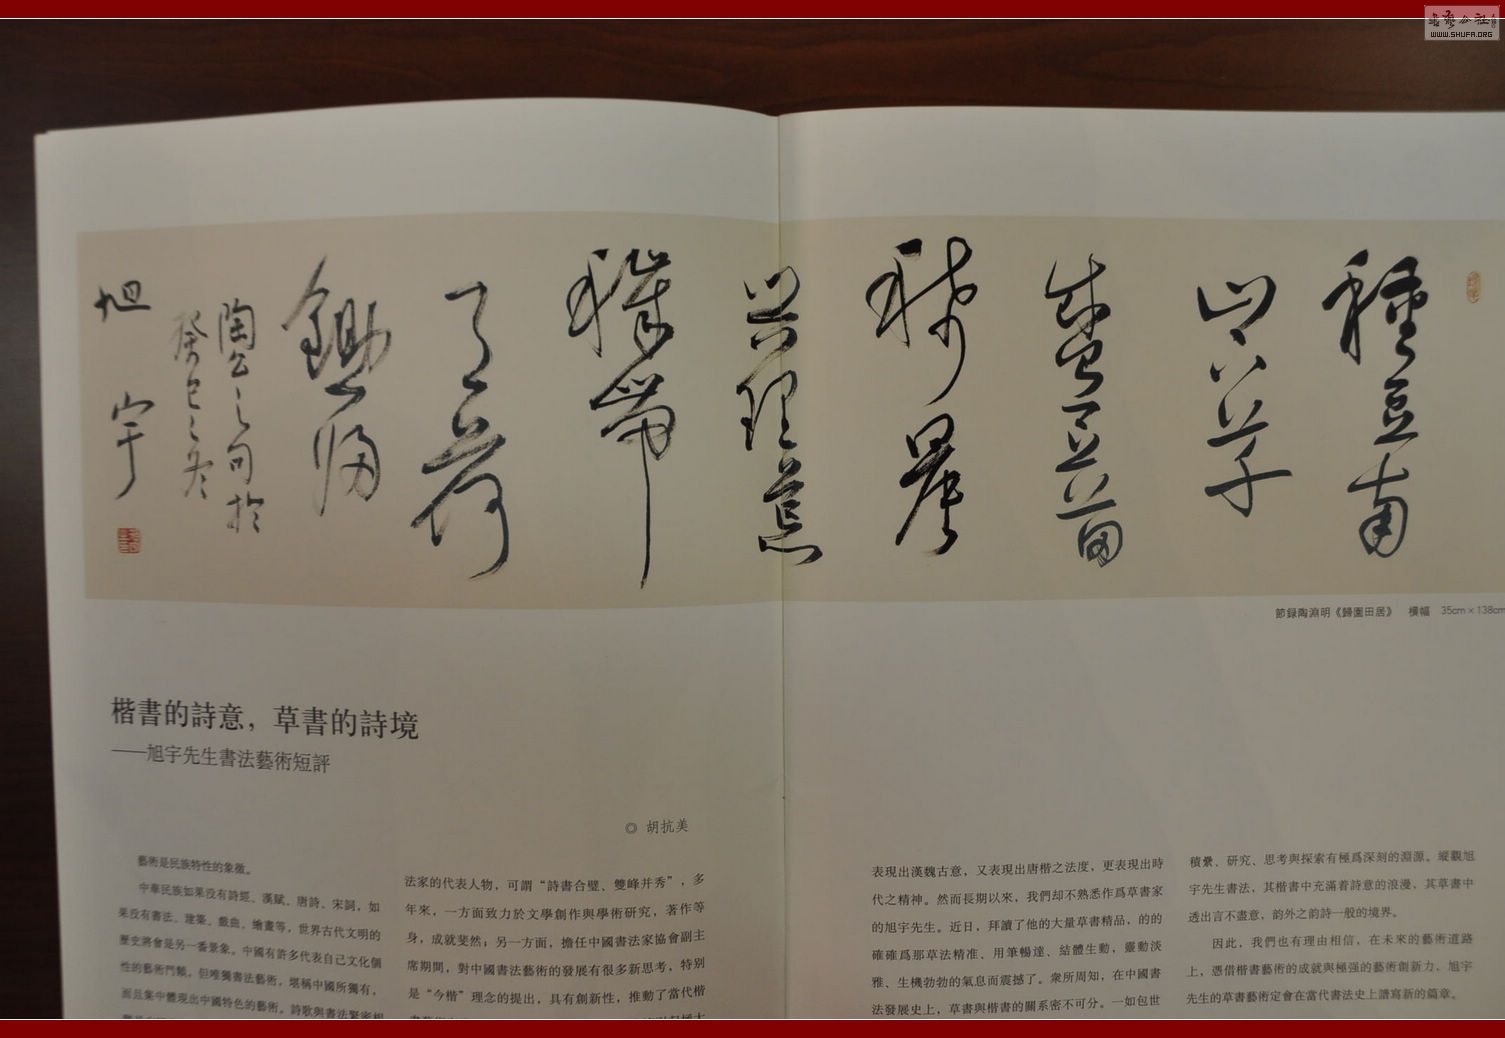 書藝公社
WWW.SHUFA.ORG
種豆南
山下草
盛豆苗
稀晨
興理荒
穢帶
月荷
鋤歸
陶公之句於
癸巳之冬
旭宇
節録陶淵明《歸園田居》 橫幅 35cm×138cm
楷書的詩意，草書的詩境
——旭宇先生書法藝術短評
◎ 胡抗美
藝術是民族特性的象徵。
中華民族如果没有詩經、漢賦、唐詩、宋詞，如
果没有書法、建築、戲曲、繪畫等，世界古代文明的
歷史將會是另一番景象。中國有許多代表自己文化個
性的藝術門類，但唯獨書法藝術，堪稱中國所獨有，
而且集中體現出中國特色的藝術。詩歌與書法緊密相
法家的代表人物，可謂“詩書合璧、雙峰并秀”，多
年來，一方面致力於文學創作與學術研究，著作等
身，成就斐然；另一方面，擔任中國書法家協會副主
席期間，對中國書法藝術的發展有很多新思考，特别
是“今楷”理念的提出，具有創新性，推動了當代楷
表現出漢魏古意，又表現出唐楷之法度，更表現出時
代之精神。然而長期以來，我們却不熟悉作爲草書家
的旭宇先生。近日，拜讀了他的大量草書精品，的的
確確爲那草法精准、用筆暢達、結體生動，靈動淡
雅、生機勃勃的氣息而震撼了。衆所周知，在中國書
法發展史上，草書與楷書的關系密不可分。一如包世
積纍、研究、思考與探索有極爲深刻的淵源。縱觀旭
宇先生書法，其楷書中充滿着詩意的浪漫，其草書中
透出言不盡意，韵外之韵詩一般的境界。
因此，我們也有理由相信，在未來的藝術道路
上，憑借楷書藝術的成就與極强的藝術創新力，旭宇
先生的草書藝術定會在當代書法史上譜寫新的篇章。